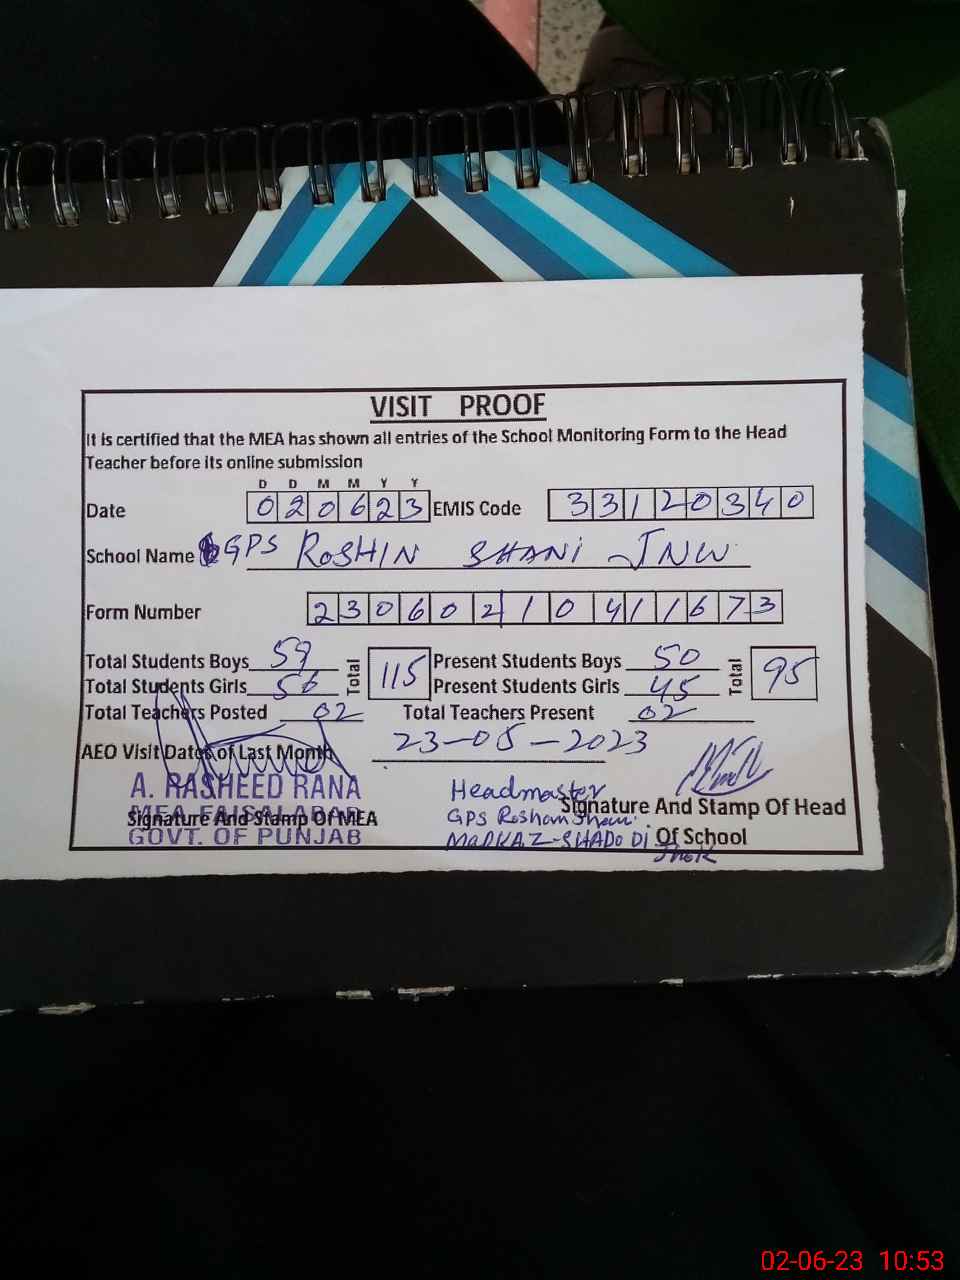 VISIT PROOF
It is certified that the MEA has shown all entries of the School Monitoring Form to the Head
Teacher before its online submission
D D M M Y Y
Date 020623 EMIS Code 33120340
School Name GPS ROSHIN SHANI JNW
Form Number 23060210411673
Total Students Boys 59 Total 115 Present Students Boys 50 Total 95
Total Students Girls 56 Present Students Girls 45
Total Teachers Posted 02 Total Teachers Present 02
AEO Visit Dates of Last Month 23-05-2023
A. RASHEED RANA
MEA FAISALABAD
GOVT. OF PUNJAB
Signature And Stamp Of MEA
Headmaster
GPS Roshan Shani
MARKAZ-SHADO DI
Signature And Stamp Of Head
Of School
02-06-23 10:53